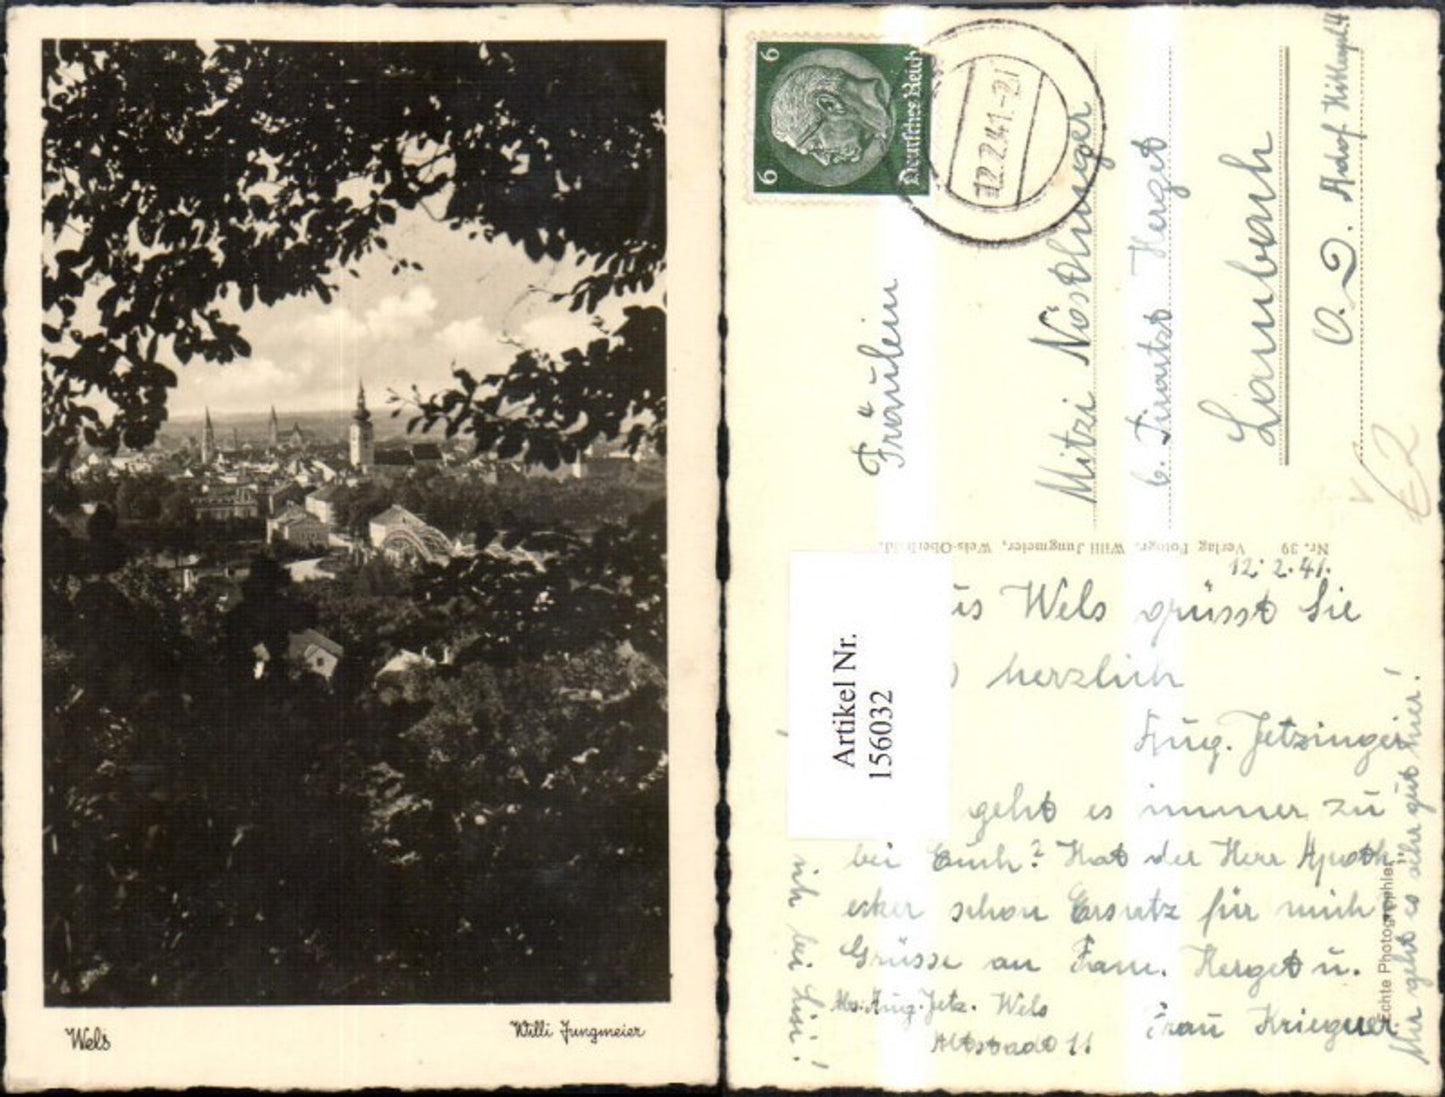 Wels
Willi Jungmeier
6
6
Deutsches Reich
12.2.41-21
Fräulein
Mitzi Nöstlinger
b. Herget
Laumbach
O. D. Adolf Hitlerpl. 4
€2
Nr. 39 Verlag Fotogr. Willi Jungmeier, Wels-Oberfeld.
12. 2. 41.
us Wels grüsst Sie
herzlich
Aug. Jetzinger
geht es immer zu
bei Euch? Hat der Herr Apoth
eker schon Ersatz für mich
Grüsse an Fam. Herget u.
Frau Kriegner
Abs. Aug. Jetz. Wels
Altstadt 11
Mir geht es sehr gut hier!
"Echte Photographie"
Artikel Nr.
156032